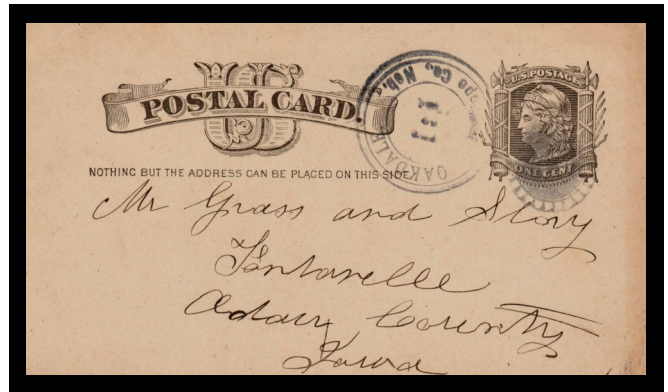 US
POSTAL CARD.
U.S. POSTAGE
ONE CENT
OAKDALE
Co., Neb.
NOTHING BUT THE ADDRESS CAN BE PLACED ON THIS SIDE
Mr Grass and Story
Fontanelle
Adair County
Iowa